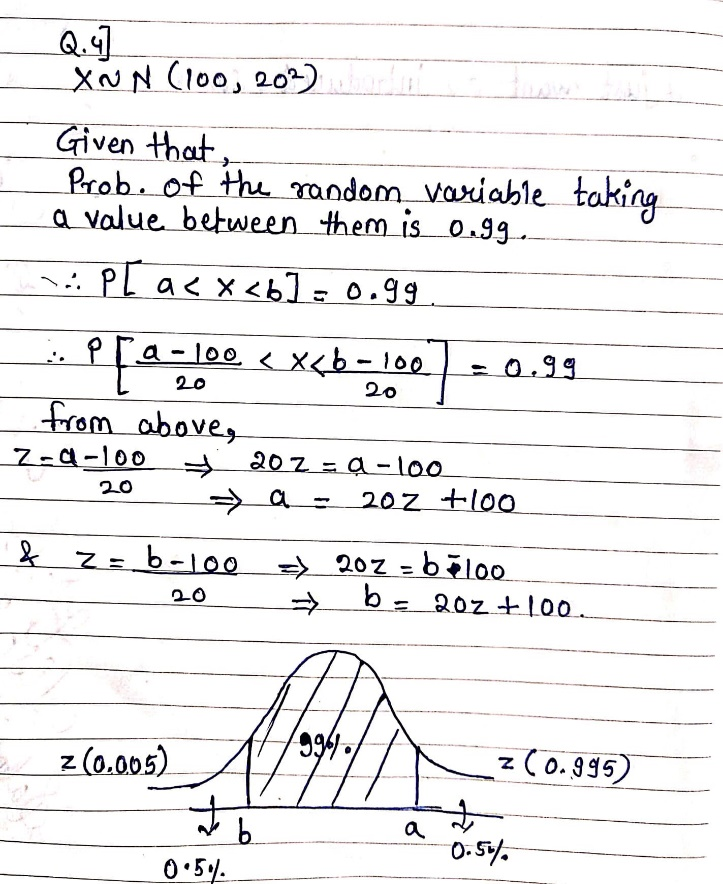 Q.4]
X ~ N (100, 20²)
Given that,
Prob. of the random variable taking
a value between them is 0.99.
∴ P[ a < x < b] = 0.99.
∴ P [ a - 100 / 20 < x < b - 100 / 20 ] = 0.99
from above,
z = a - 100 / 20 ⇒ 20z = a - 100
⇒ a = 20z + 100
& z = b - 100 / 20 ⇒ 20z = b - 100
⇒ b = 20z + 100.
99%.
z (0.005)
z (0.995)
b
a
0.5%.
0.5%.